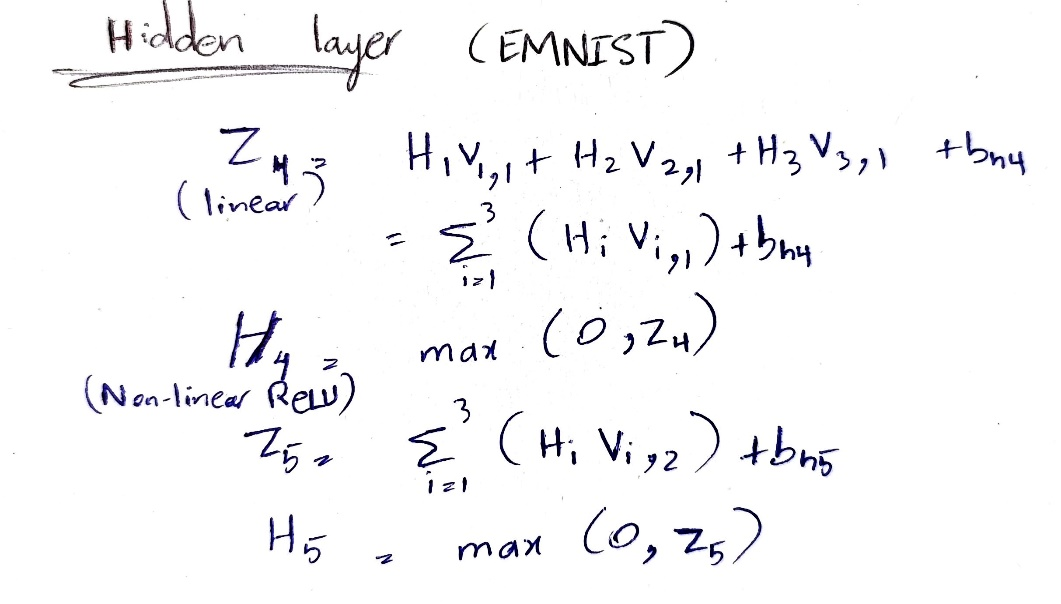 Hidden layer (EMNIST)
Z₄ = H₁V₁,₁ + H₂V₂,₁ + H₃V₃,₁ + bₕ₄
(linear)
= Σ³ᵢ₌₁ (HᵢVᵢ,₁) + bₕ₄
H₄ = max (0, Z₄)
(Non-linear ReLU)
Z₅ = Σ³ᵢ₌₁ (HᵢVᵢ,₂) + bₕ₅
H₅ = max (0, Z₅)